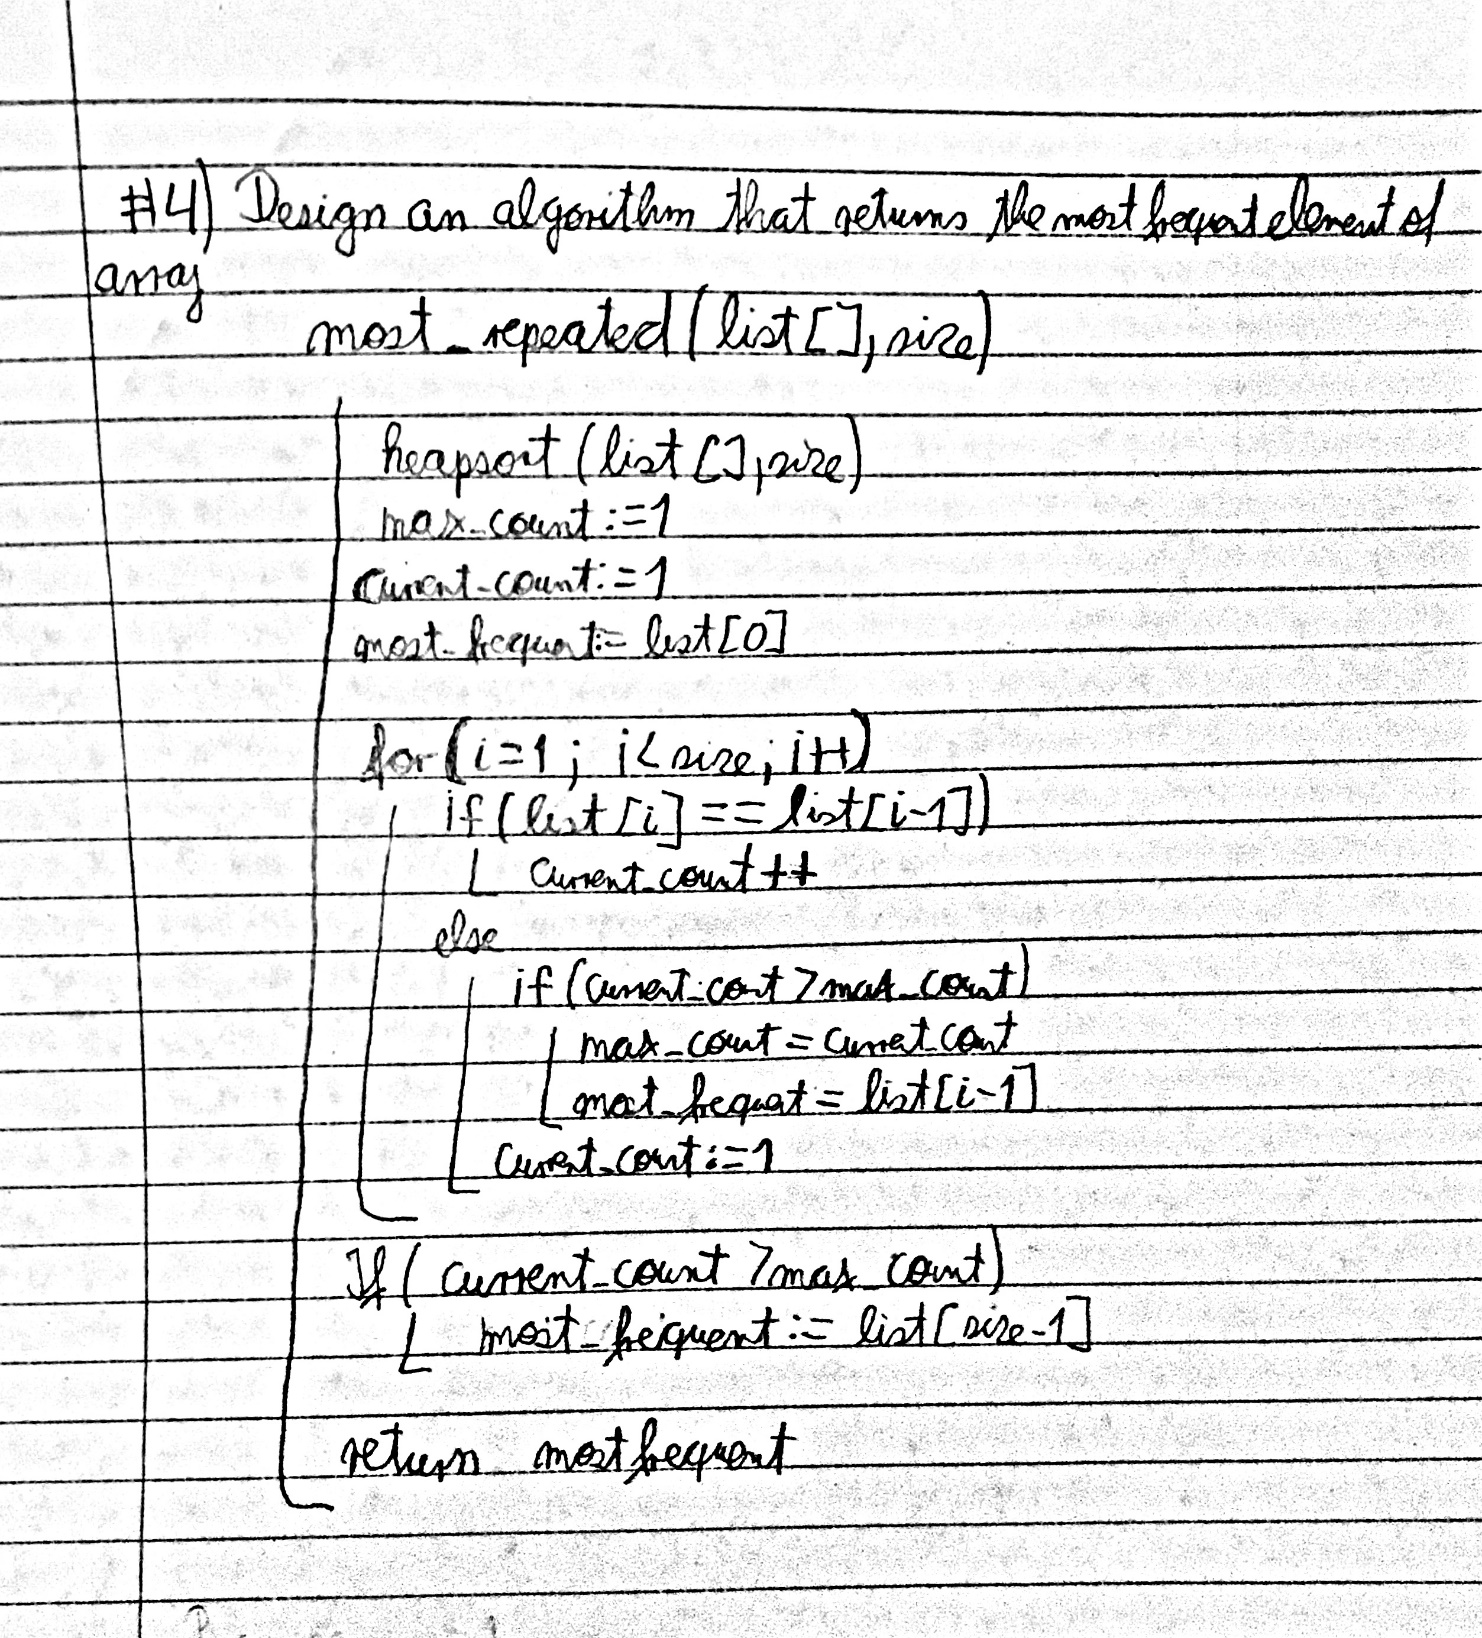 #4) Design an algorithm that returns the most frequent element of
array
most_repeated (list[], size)
heapsort (list[], size)
max_count := 1
current_count := 1
most_frequent := list[0]
for (i=1; i< size; i++)
if (list[i] == list[i-1])
current_count ++
else
if (current_count > max_count)
max_count = current_count
most_frequent = list[i-1]
current_count := 1
If ( current_count > max_count)
most_frequent := list[size-1]
return most frequent